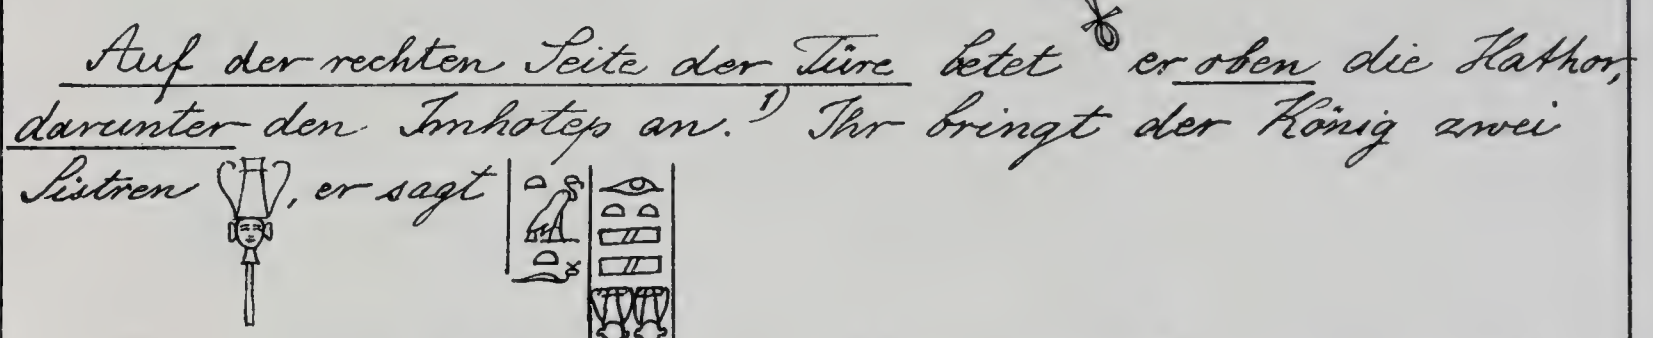 Auf der rechten Seite der Türe betet er oben die Hathor,
darunter den Imhotep an.¹⁾ Ihr bringt der König zwei
Sistren , er sagt